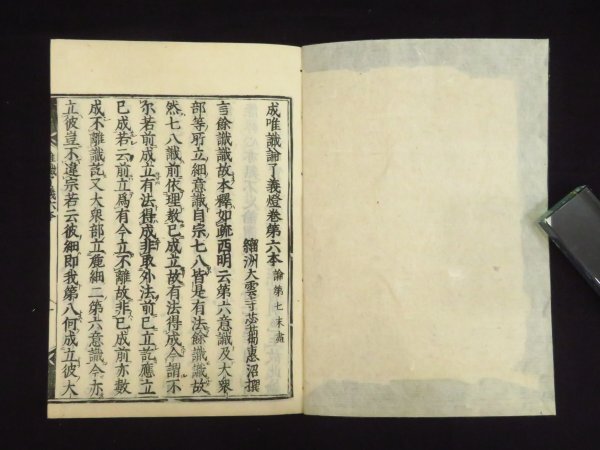 成唯識論了義燈卷第六本 論第七末盡
緇洲大雲寺苾蒭惠沼撰
言餘識識故本釋如疏西明云第六意識及大衆
部等所立細意識自宗七八皆是有法餘識識故
然七八識前依理教已成立故有法得成今謂不
尓若前成立有法得成非取外法前已立訖應立
已成若云前立爲有今立不離故非已成前亦數
成不離識訖又大衆部立麁細二第六意識今亦
立彼豈不違宗若云彼細即我第八何成立彼大